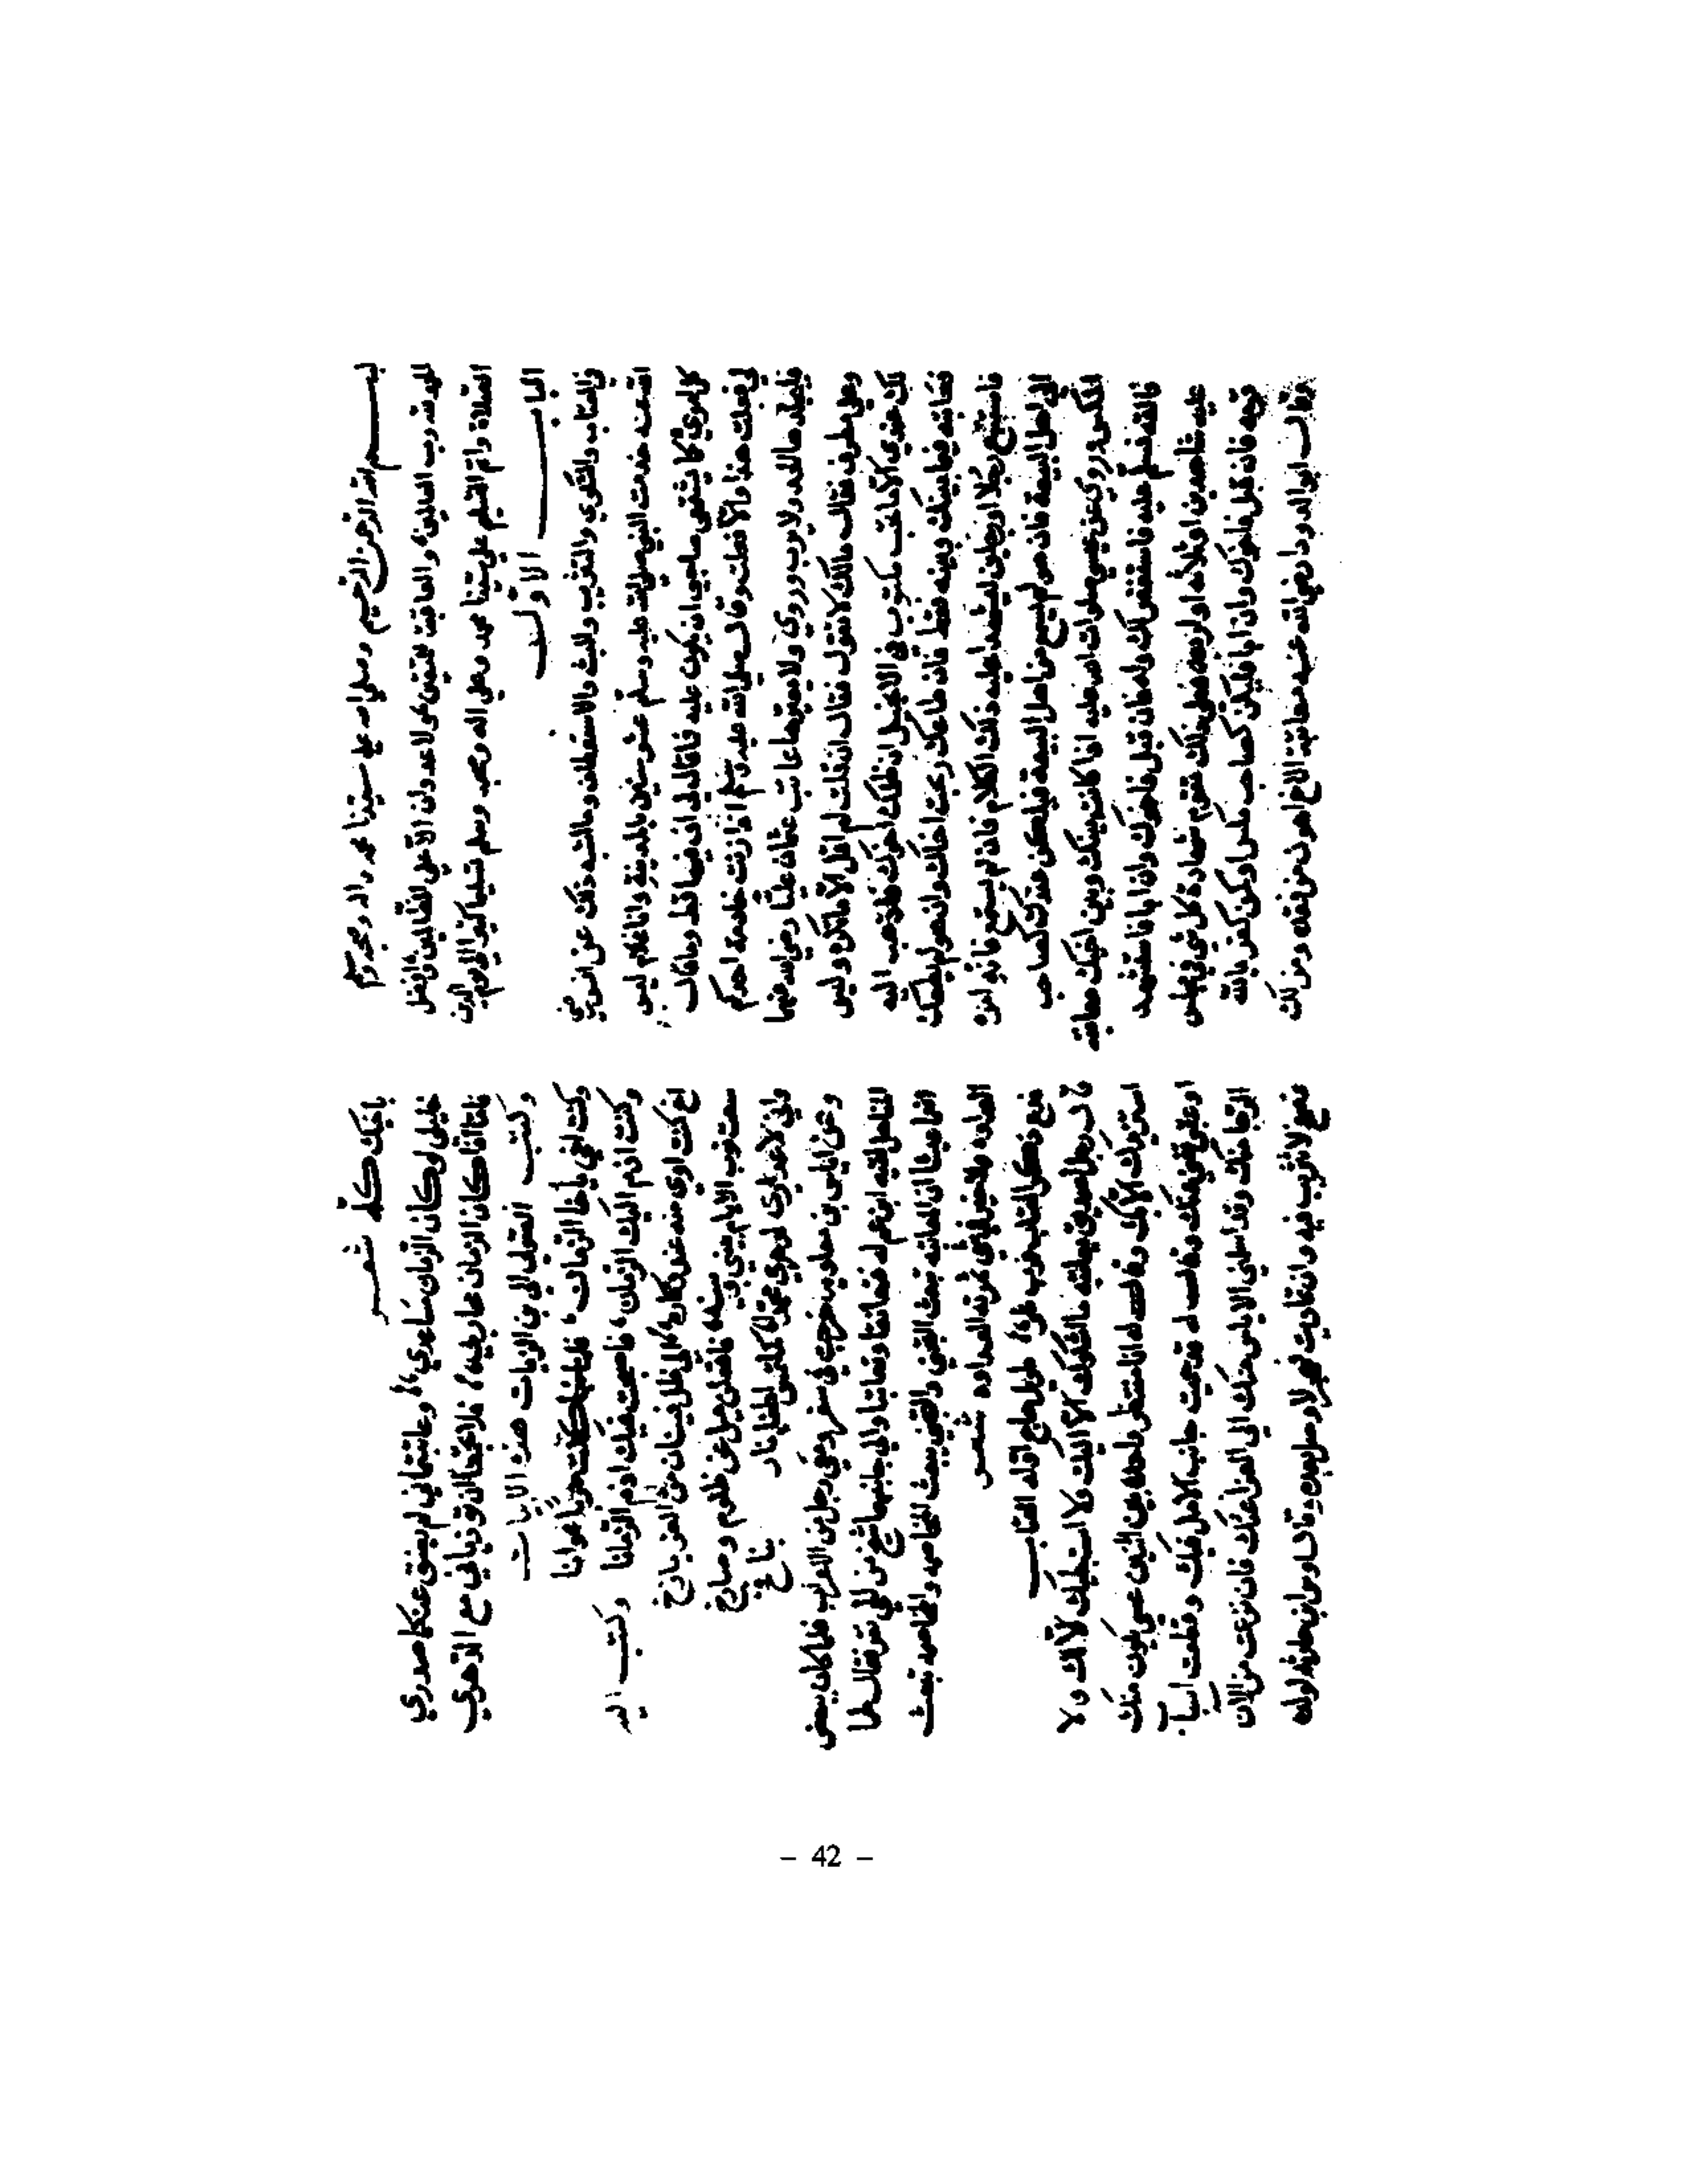 بسم الله الرحمن الرحيم وصلى الله على سيدنا محمد واله وصحبه وسلم
الحمد لله رب العالمين والعاقبة للمتقين ولا عدوان الا على الظالمين وافضل
الصلاة واتم التسليم على سيدنا محمد وعلى اله وصحبه وسلم تسليما كثيرا الى يوم الدين
الباب الاول
في العتاب والشكوى والتثريب والبث والاستعطاف وما اشبه ذلك عن انس رضي
الله عنه خدمت النبي صلى الله عليه وسلم عشر سنين بالمدينة وانا غلام ليس
كل امري كما يشتهي صاحبي ان يكون عليه فما قال لي اف فيها قط وما قال
لي فعلت هذا والا فعلت وقال صلى الله عليه وسلم اذا زنت خادمة احدكم
فليجلدها الحد ولا يثرب وروي ولا يعيرها عاتب عثمان عليا رضي الله عنهما
وعلي مطرق فقال مالك لا تقول فقال ان قلت لم اقل الا ما تكره وليس
لك عندي الا ما تحب مكتوب في الانجيل ان ظلمك اخوك فاذهب اليه
فعاتبه فيما بينك وبينه فقط فان طاعك ربحت اخاك وان هو لم يطعك
فاستتبع رجلا او رجلين ليشهدا عليه ذلك الكلام فان لم يستمع فانه امره
الى اهل البيعة فان هو لم يسمع من اهل البيعة فليكن عندك كصاحب
المكس وروي عن عيسى صلوات الله عليه اذا كانت بينك وبين اخيك معاتبة
فالقه فسلم عليه فاستغفر لك وله فان قبل فاخوك وان ابا فاستشهد
عليه شاهدين او ثلاثة او اربعة فعلى ذلك تقوم شهادة كل شيء في مجلس
قومه فان قبل فاخوك وان ابا فليكن كصاحب مكس او كمن كفر بالله
وقال ابو الدرداء رضي الله عنه معاتبة الاخ اهون من فقده ومن لك
باخيك كله شعر
خليلي لو كان الزمان مساعدي وعاتبتماني لم يضق عنكما صدري
فاما اذا كان الزمان محاربي فلا تجمعا ان توذياني مع الدهر
وكتب الصولي الى بن الزيات هذه الابيات
وكنت اخي باخا الزمان فلما نبا كنت حربا عوانا
وكنت اذم اليك الزمان فاصبحت فيك اذم الزمانا وكتب اليه
اخ كنت اوي منه عند ادكاره الى ظل فينان من العز باذخ
سعت نوب الايام بيني وبينه فاقلعن عن ظلوم وصارخ
واني لاعدادي لدهري محمدا كملتمس اطفا نار بنافخ
وعن اياس بن معاوية خرجت في سفر ومعي رجل من الاعراب فلما كان ببعض
المناهل لقيه ابن عم له فتعانقا وتعاتبا والى جانبهما شيخ من الحي فقال لهما
انعما عيشا ان المعاتبة تبعث التجني والتجني يبعث المخاصمة والمخاصمة تبعث
العداوة ولا خير في شيء ثمرته العداوة شعر
فدع ذكر العتاب فرب شر طويل هاج اوله العتاب
قال رجل لصديق يعاتبه ما اشكوك الا اليك ولا استبطيك الا لك ولا
استزيدك الا بك وقال له انا منتظر واحدة من اثنين عسى يكون منك
او عقبى تغني عنك وقال له قد حميت جانب الامل فيك وقطعت اسباب
الرجا منك وقد اسلمني الاياس منك الى العزا عنك فان نزعت من الان
فصفح لا تثريب فيه وان تماديت فهجر لا وصل بعده وقال اوس بن حارثة لولده
– 42 –